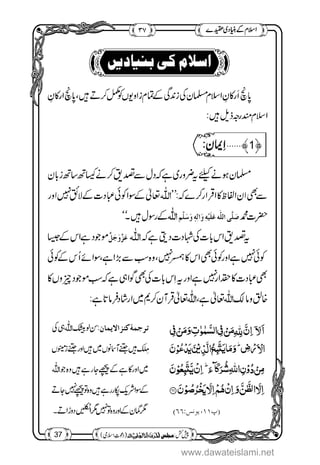 اسلام کے بنیادی عقیدے
۳۷
اسلام کی بنیادیں
پانچ ارکانِ اسلام مسلمان کی زندگی کے تمام زاویوں کو مکمل کرتے ہیں، پانچ ارکانِ
اسلام مندرجہ ذیل ہیں
﴿1﴾……ایمان:
مسلمان ہونے کیلئے ضروری ہے کہ دل سے تصدیق کرنے کے ساتھ ساتھ زبان
سے بھی ان الفاظ کا اقرار کرے کہ: ’’اللہ تعالٰی کے سوا کوئی عبادت کے لائق نہیں اور
حضرت محمد صلی اللہ علیہ والہ وسلم اللہ کے رسول ہیں ‘‘۔
یہ تصدیق اس بات کی شہادت دیتی ہے کہ اللہ عزوجل موجود ہے اس کے جیسا
کوئی نہیں اور کوئی بھی اس کا ہمسر نہیں، وہ سب سے بڑا ہے، سوائے اُس کے کوئی
بھی عبادت کا حقدار نہیں اور یہ اس بات کی بھی گواہی ہے کہ سب موجود چیزوں کا
خالق و مالک اللہ تعالٰی ہے، اللہ تعالٰی قرآن کریم میں ارشاد فرماتا ہے:
اَلَاۤ اِنَّ لِلّٰهِ مَنْ فِی السَّمٰوٰتِ وَ مَنْ فِی
الْاَرْضِؕ وَ مَا یَتَّبِـعُ الَّذِیْنَ یَدْعُوْنَ
مِنْ دُوْنِ اللّٰهِ شُرَكَآءَؕ اِنْ یَّتَّبِعُوْنَ
اِلَّا الظَّنَّ وَ اِنْ هُمْ اِلَّا یَخْرُصُوْنَ
(پ۱۱، یونس:۶۶)
ترجمۂ کنز الایمان: سن لو بیشک اللہ ہی کی
مِلک ہیں جتنے آسمانوں میں ہیں اور جتنے زمینوں
میں اور کاہے کے پیچھے جارہے ہیں وہ جو اللہ
کے سوا شریک پکار رہے ہیں وہ تو پیچھے نہیں جاتے
مگر گمان کے اور وہ تو نہیں مگر اٹکلیں دوڑاتے۔
37
پیش کش:
(دعوتِ اسلامی)
www.dawateislami.net